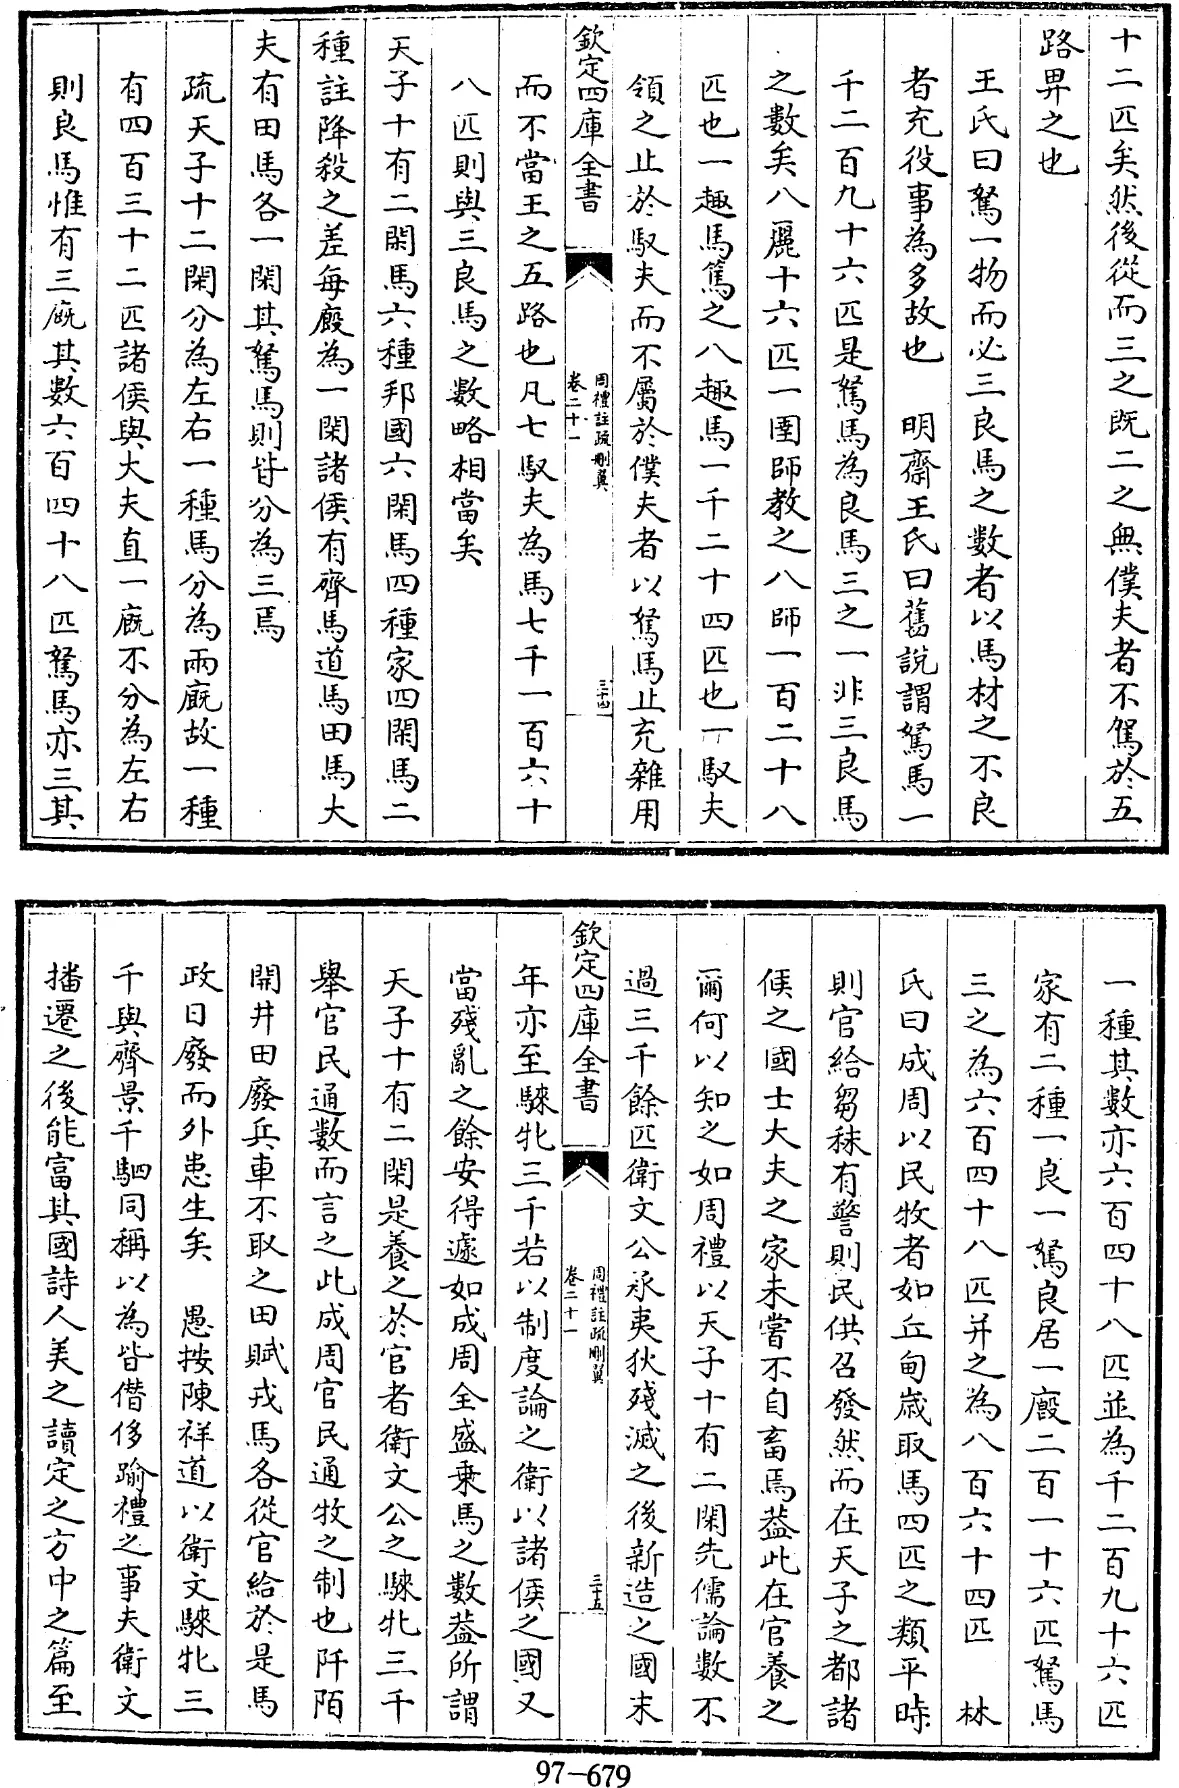 十二匹矣然後從而三之既二之無僕夫者不駕於五
路畀之也
王氏曰駑一物而必三良馬之數者以馬材之不良
者充役事為多故也　明齋王氏曰舊説謂駑馬一
千二百九十六匹是駑馬為良馬三之一非三良馬
之數矣八麗十六匹一圉師教之八師一百二十八
匹也一趣馬篤之八趣馬一千二十四匹也一馭夫
領之止於馭夫而不屬於僕夫者以駑馬止充雜用
欽定四庫全書
周禮註疏刪翼
卷二十一
三十四
而不當王之五路也凡七馭夫為馬七千一百六十
八匹則與三良馬之數略相當矣
天子十有二閑馬六種邦國六閑馬四種家四閑馬二
種註降殺之差每廄為一閑諸侯有齊馬道馬田馬大
夫有田馬各一閑其駑馬則皆分為三焉
疏天子十二閑分為左右一種馬分為兩廐故一種
有四百三十二匹諸侯與大夫直一廐不分為左右
則良馬惟有三廐其數六百四十八匹駑馬亦三其
一種其數亦六百四十八匹並為千二百九十六匹
家有二種一良一駑良居一廄二百一十六匹駑馬
三之為六百四十八匹并之為八百六十四匹　林
氏曰成周以民牧者如丘甸歲取馬四匹之類平時
則官給芻秣有警則民供召發然而在天子之都諸
侯之國士大夫之家未嘗不自畜焉葢此在官養之
爾何以知之如周禮以天子十有二閑先儒論數不
過三千餘匹衛文公承夷狄殘滅之後新造之國末
欽定四庫全書
周禮註疏刪翼
卷二十一
三十五
年亦至騋牝三千若以制度論之衛以諸侯之國又
當殘亂之餘安得遽如成周全盛乗馬之數葢所謂
天子十有二閑是養之於官者衛文公之騋牝三千
舉官民通數而言之此成周官民通牧之制也阡陌
開井田廢兵車不取之田賦戎馬各從官給於是馬
政日廢而外患生矣　愚按陳祥道以衛文騋牝三
千與齊景千駟同稱以為皆僭侈踰禮之事夫衛文
播遷之後能富其國詩人美之讀定之方中之篇至
97-679